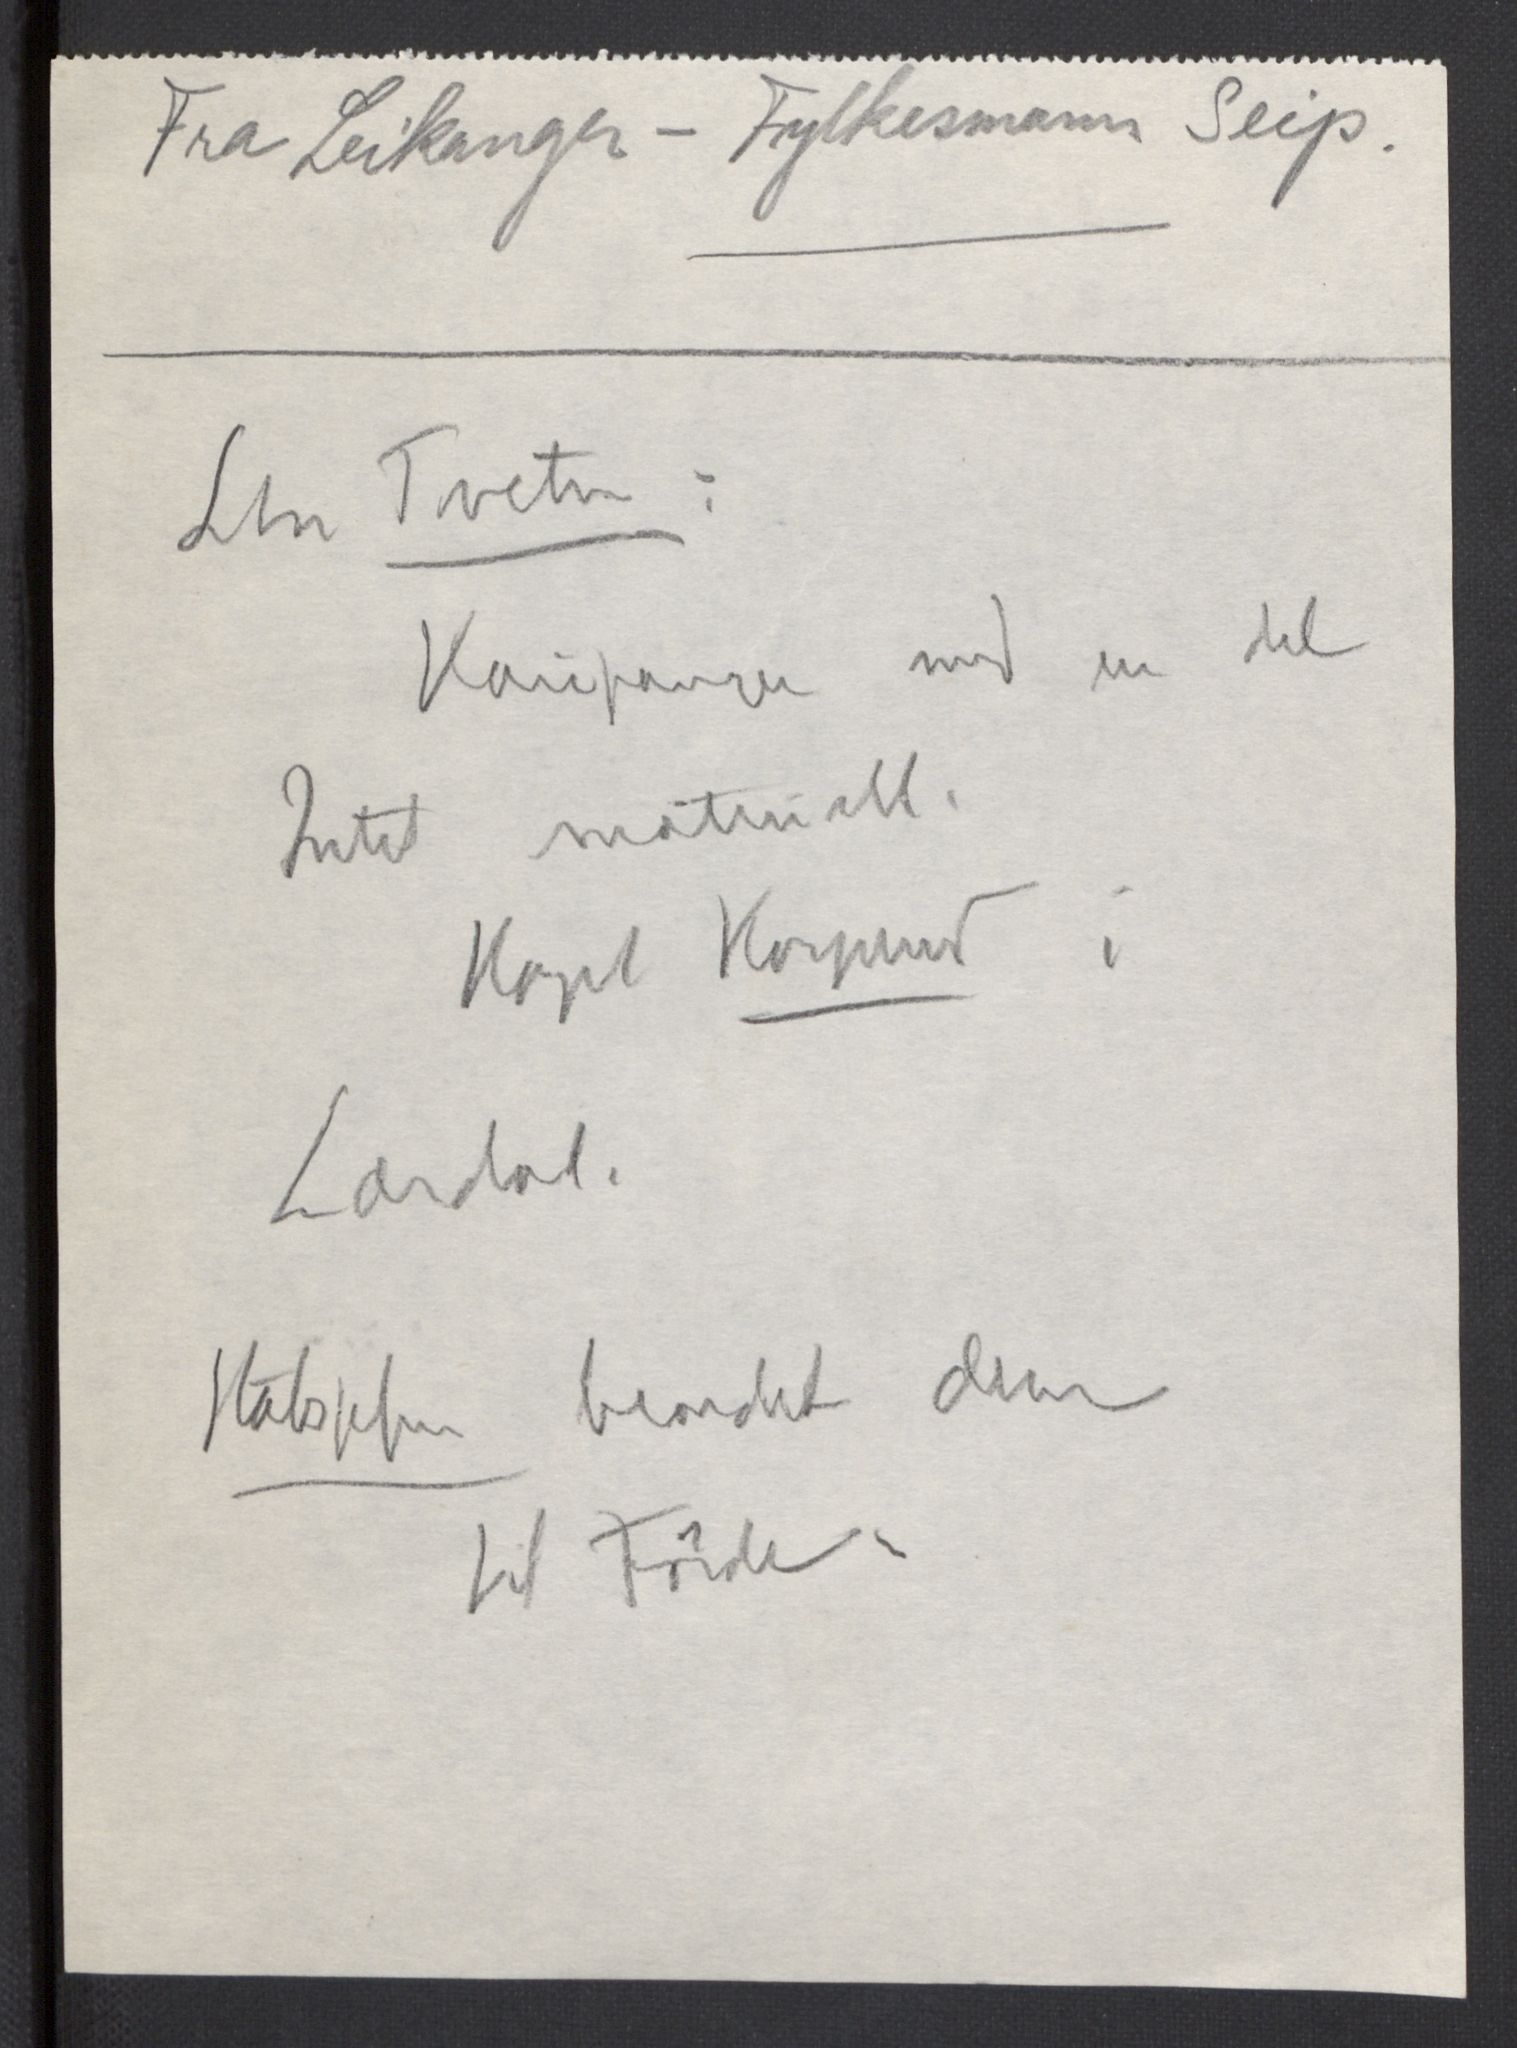 Fra Leikanger – Fylkesmann Seip.
Ltn Tveten :
Kaupanger med en del
Intet materiell.
Kapt Korperud i
Lærdal.
beordret dem
til Förde.